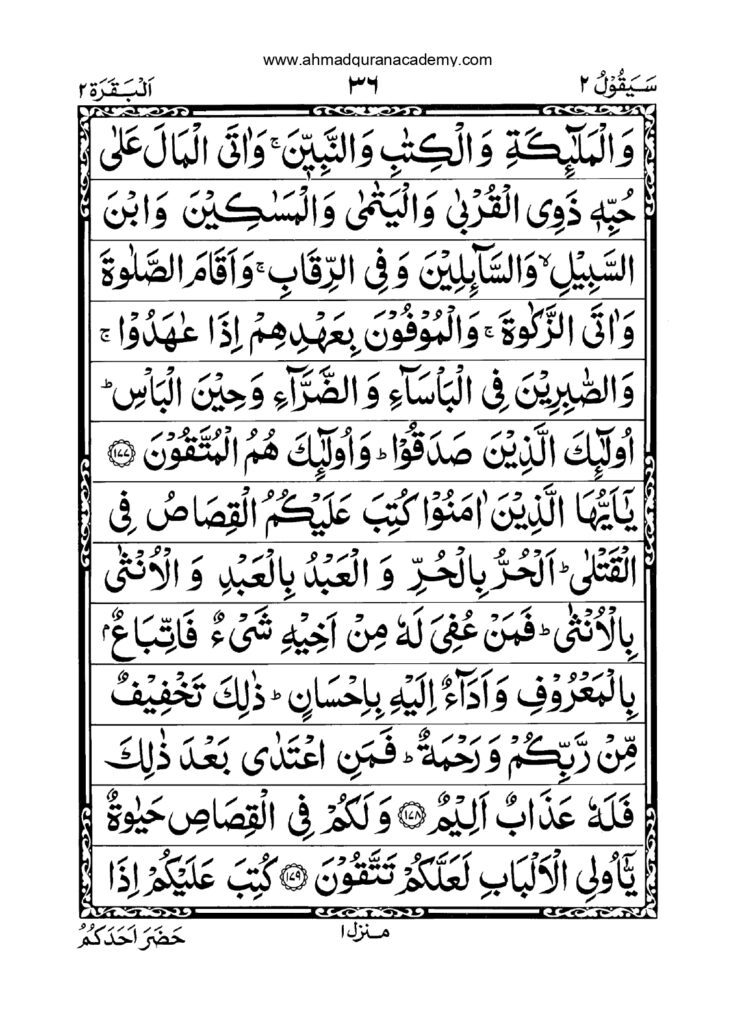 www.ahmadquranacademy.com
سَيَقُوْلُ ٢ ٣٦ اَلْبَقَرَة ٢
وَالْمَلٰٓئِكَةِ وَالْكِتٰبِ وَالنَّبِيّٖنَ ۚ وَاٰتَى الْمَالَ عَلٰى
حُبِّهٖ ذَوِى الْقُرْبٰى وَالْيَتٰمٰى وَالْمَسٰكِيْنَ وَابْنَ
السَّبِيْلِ ۙ وَالسَّآئِلِيْنَ وَفِى الرِّقَابِ ۚ وَاَقَامَ الصَّلٰوةَ
وَاٰتَى الزَّكٰوةَ ۚ وَالْمُوْفُوْنَ بِعَهْدِهِمْ اِذَا عٰهَدُوْا ۚ
وَالصّٰبِرِيْنَ فِى الْبَاْسَآءِ وَالضَّرَّآءِ وَحِيْنَ الْبَاْسِ ؕ
اُولٰٓئِكَ الَّذِيْنَ صَدَقُوْا ؕ وَاُولٰٓئِكَ هُمُ الْمُتَّقُوْنَ ١٧٧
يٰۤاَيُّهَا الَّذِيْنَ اٰمَنُوْا كُتِبَ عَلَيْكُمُ الْقِصَاصُ فِى
الْقَتْلٰى ؕ اَلْحُرُّ بِالْحُرِّ وَالْعَبْدُ بِالْعَبْدِ وَالْاُنْثٰى
بِالْاُنْثٰى ؕ فَمَنْ عُفِىَ لَهٗ مِنْ اَخِيْهِ شَىْءٌ فَاتِّبَاعٌ ۢ
بِالْمَعْرُوْفِ وَاَدَآءٌ اِلَيْهِ بِاِحْسَانٍ ؕ ذٰلِكَ تَخْفِيْفٌ
مِّنْ رَّبِّكُمْ وَرَحْمَةٌ ؕ فَمَنِ اعْتَدٰى بَعْدَ ذٰلِكَ
فَلَهٗ عَذَابٌ اَلِيْمٌ ١٧٨ وَلَكُمْ فِى الْقِصَاصِ حَيٰوةٌ
يّٰۤاُولِى الْاَلْبَابِ لَعَلَّكُمْ تَتَّقُوْنَ ١٧٩ كُتِبَ عَلَيْكُمْ اِذَا
منزل ١
حَضَرَ اَحَدَكُمُ